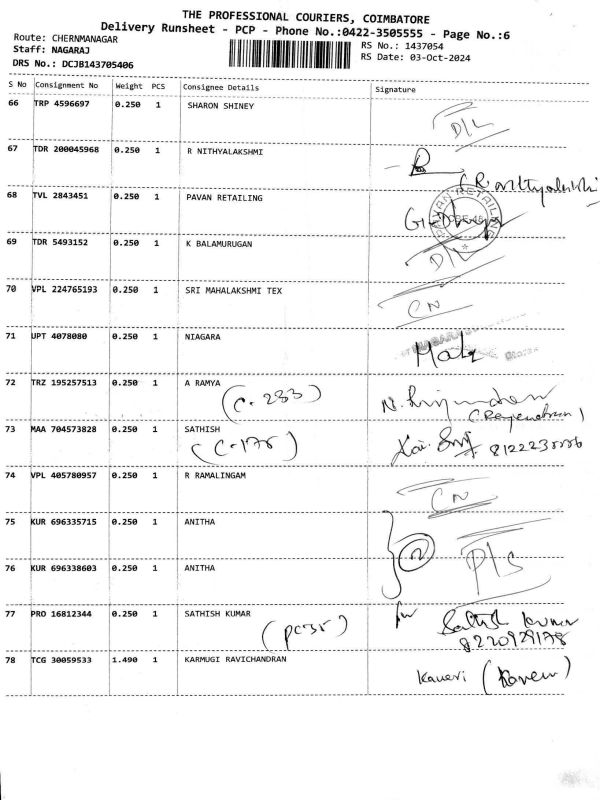 THE PROFESSIONAL COURIERS, COIMBATORE
Delivery Runsheet - PCP - Phone No.:0422-3505555 - Page No.:6
Route: CHERNMANAGAR
RS No.: 1437054
Staff: NAGARAJ
RS Date: 03-Oct-2024
DRS No.: DCJB143705406
S No Consignment No Weight PCS Consignee Details Signature
66 TRP 4596697 0.250 1 SHARON SHINEY D/L
67 TDR 200045968 0.250 1 R NITHYALAKSHMI
68 TVL 2843451 0.250 1 PAVAN RETAILING
PAVAN RETAILING
69 TDR 5493152 0.250 1 K BALAMURUGAN D/L
70 VPL 224765193 0.250 1 SRI MAHALAKSHMI TEX CN
71 UPT 4078080 0.250 1 NIAGARA
72 TRZ 195257513 0.250 1 A RAMYA
(C-233)
73 MAA 704573828 0.250 1 SATHISH
(C-175)
74 VPL 405780957 0.250 1 R RAMALINGAM CN
75 KUR 696335715 0.250 1 ANITHA
2 P/S
76 KUR 696338603 0.250 1 ANITHA
77 PRO 16812344 0.250 1 SATHISH KUMAR Sathish Kumar
(PC35) 8220929178
78 TCG 30059533 1.490 1 KARMUGI RAVICHANDRAN Kaveri